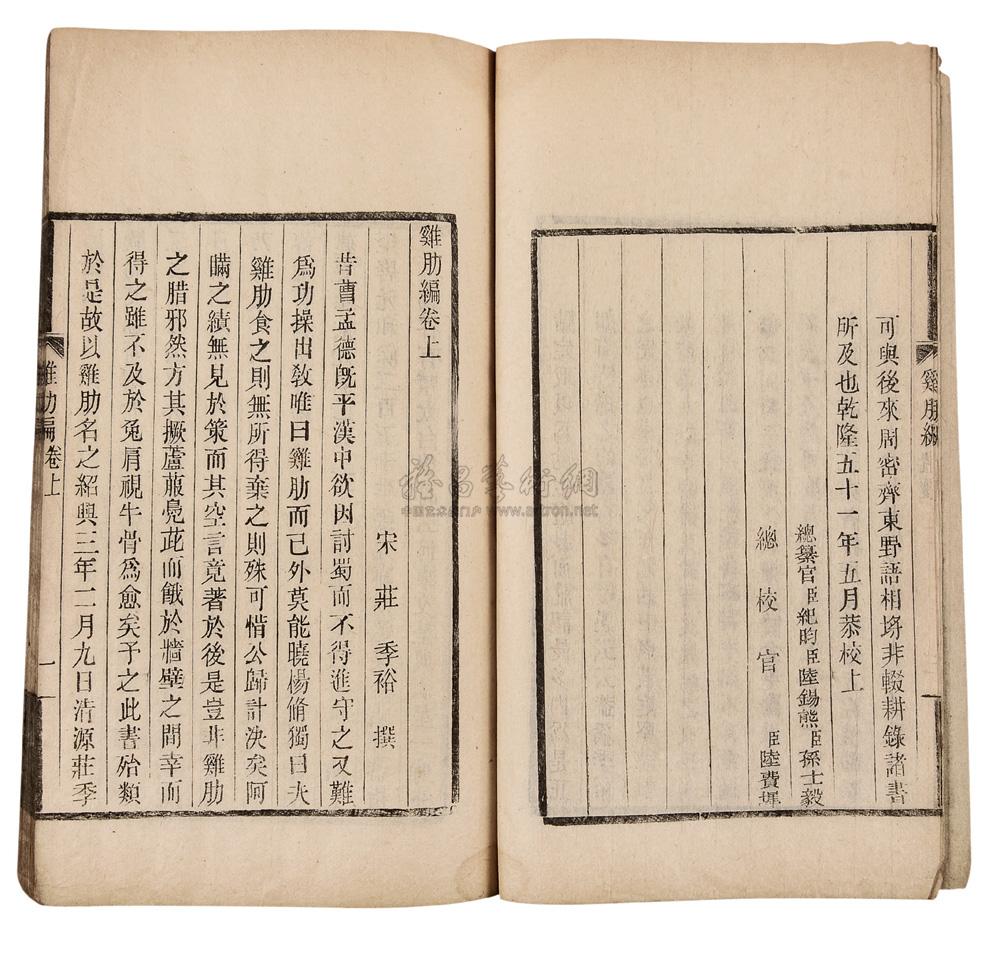 可與後來周密齊東野語相埒非輟耕錄諸書
所及也乾隆五十一年五月恭校上
總纂官臣紀昀臣陸錫熊臣孫士毅
總校官臣陸費墀
雞肋編
雞肋編卷上
宋莊季裕撰
昔曹孟德旣平漢中欲因討蜀而不得進守之又難
爲功操出敎唯曰雞肋而已外莫能曉楊脩獨曰夫
雞肋食之則無所得棄之則殊可惜公歸計決矣阿
瞞之績無見於策而其空言竟著於後是豈非雞肋
之腊邪然方其撅蘆菔鳧茈而餓於牆壁之間幸而
得之雖不及於兔肩視牛骨爲愈矣予之此書殆類
於是故以雞肋名之紹興三年二月九日清源莊季
雞肋編卷上
一
雅昌藝術網
中国艺术品门户 www.artron.net